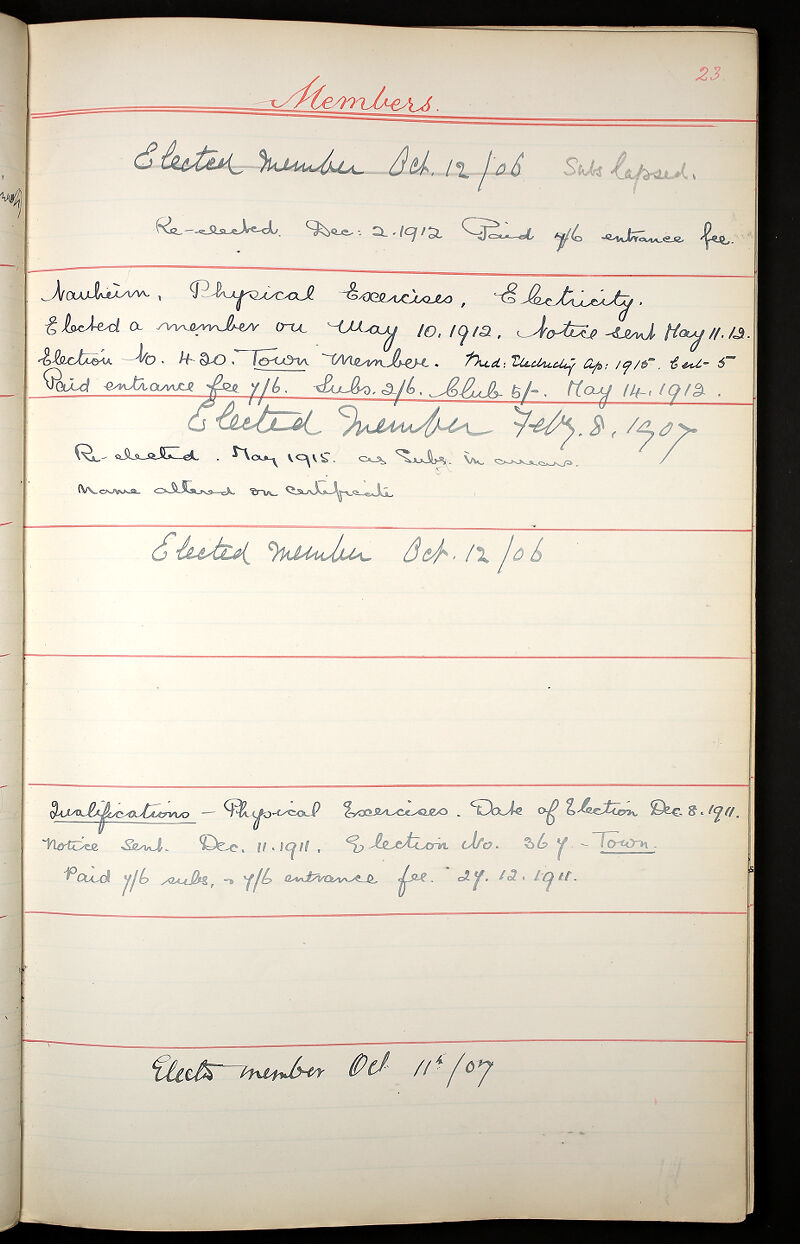 23.
Members.
Elected Member Oct. 12/06 Subs lapsed.
Re-elected. Dec: 2. 1912 Paid 7/6 entrance fee.
Nauheim, Physical Exercises, Electricity.
Elected a member on May 10. 1912. Notice sent May 11. 12.
Election No. 420. Town Member. Med: Electricity Ap: 1915. Cert 5
Paid entrance fee 7/6. Subs. 2/6. Club 5/-. May 14. 1912.
Elected Member Feby. 8. 1907
Re-elected. May 1915. as Subs. in arrears.
Name altered on certificate
Elected Member Oct. 12/06
Qualifications – Physical Exercises. Date of Election Dec. 8. 1911.
Notice Sent. Dec. 11. 1911. Election No. 367 – Town.
Paid 7/6 subs, 7/6 entrance fee. 27. 12. 1911.
Elected member Oct 11th/07